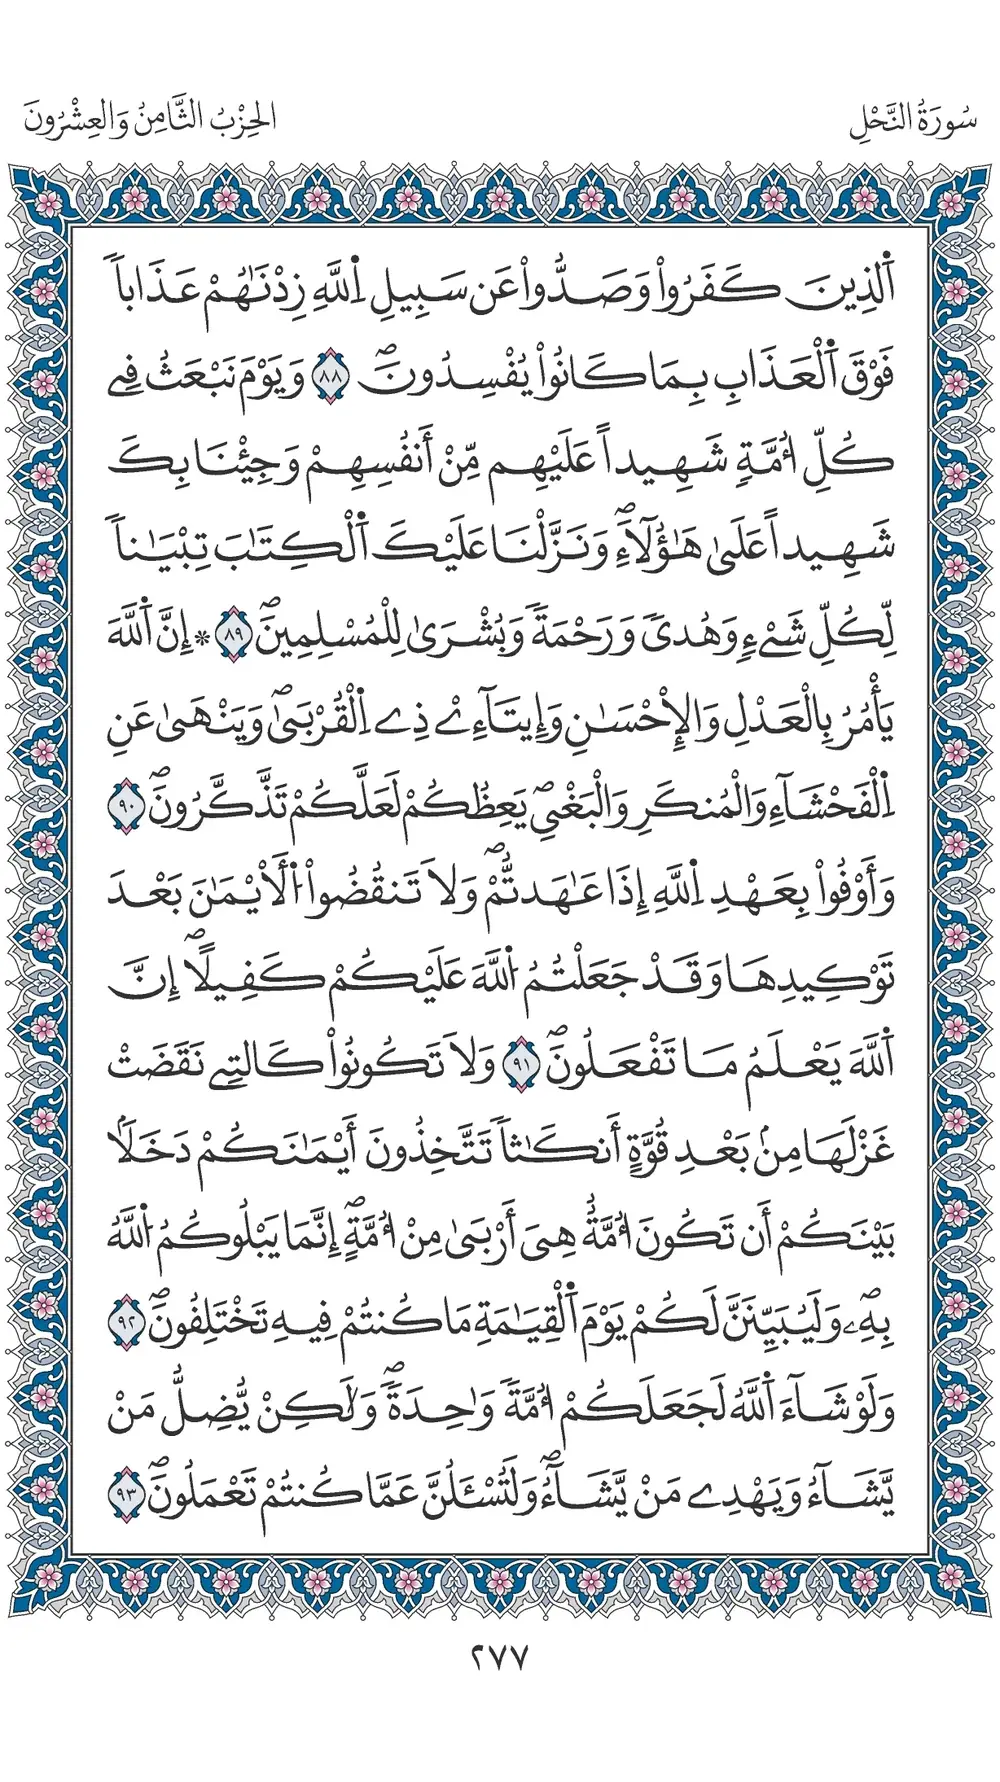 سُورَةُ النَّحْلِ
الحِزْبُ الثَّامِنُ وَالعِشْرُونَ
اَ۬لذِينَ كَفَرُواْ وَصَدُّواْ عَن سَبِيلِ اِ۬للَّهِ زِدْنَٰهُمْ عَذَاباٗ
فَوْقَ اَ۬لْعَذَابِ بِمَا كَانُواْ يُفْسِدُونَۖ ٨٨ وَيَوْمَ نَبْعَثُ فِے
كُلِّ أُمَّةٖ شَهِيداً عَلَيْهِم مِّنْ أَنفُسِهِمْ وَجِئْنَا بِكَ
شَهِيداً عَلَىٰ هَٰٓؤُلَآءِۖ وَنَزَّلْنَا عَلَيْكَ اَ۬لْكِتَٰبَ تِبْيَٰناٗ
لِّكُلِّ شَےْءٖ وَهُدىٗ وَرَحْمَةٗ وَبُشْرَىٰ لِلْمُسْلِمِينَۖ ٨٩ * إِنَّ اَ۬للَّهَ
يَأْمُرُ بِالْعَدْلِ وَالْإِحْسَٰنِ وَإِيتَآءِےْ ذِے اِ۬لْقُرْبَىٰۖ وَيَنْهَىٰ عَنِ
اِ۬لْفَحْشَآءِ وَالْمُنكَرِ وَالْبَغْيِۖ يَعِظُكُمْ لَعَلَّكُمْ تَذَّكَّرُونَۖ ٩٠
وَأَوْفُواْ بِعَهْدِ اِ۬للَّهِ إِذَا عَٰهَدتُّمْۖ وَلَا تَنقُضُواْ اُ۬لَايْمَٰنَ بَعْدَ
تَوْكِيدِهَا وَقَدْ جَعَلْتُمُ اُ۬للَّهَ عَلَيْكُمْ كَفِيلًاۖ إِنَّ
اَ۬للَّهَ يَعْلَمُ مَا تَفْعَلُونَۖ ٩١ وَلَا تَكُونُواْ كَالتِے نَقَضَتْ
غَزْلَهَا مِنۢ بَعْدِ قُوَّةٍ أَنكَٰثاٗ تَتَّخِذُونَ أَيْمَٰنَكُمْ دَخَلَاۢ
بَيْنَكُمْ أَن تَكُونَ أُمَّةٌ هِيَ أَرْبَىٰ مِنْ أُمَّةٍۖ إِنَّمَا يَبْلُوكُمُ اُ۬للَّهُ
بِهِۦۖ وَلَيُبَيِّنَنَّ لَكُمْ يَوْمَ اَ۬لْقِيَٰمَةِ مَا كُنتُمْ فِيهِ تَخْتَلِفُونَۖ ٩٢
وَلَوْ شَآءَ اَ۬للَّهُ لَجَعَلَكُمْ أُمَّةٗ وَٰحِدَةٗۖ وَلَٰكِنْ يُّضِلُّ مَنْ
يَّشَآءُ وَيَهْدِے مَنْ يَّشَآءُۖ وَلَتُسْـَٔلُنَّ عَمَّا كُنتُمْ تَعْمَلُونَۖ ٩٣
٢٧٧